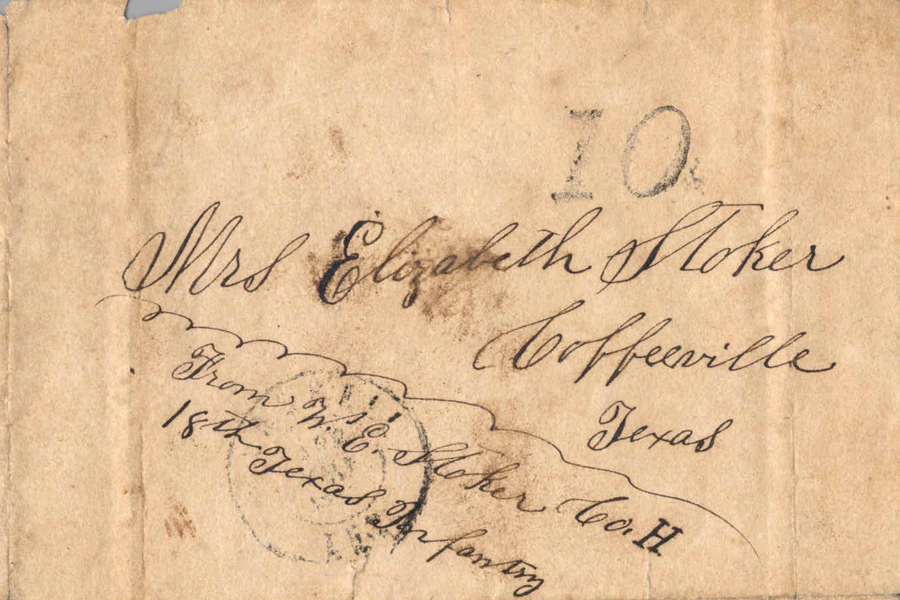 10
Mrs Elizabeth Stoker
Coffeeville
Texas
From W. E. Stoker Co. H
18th Texas Infantry